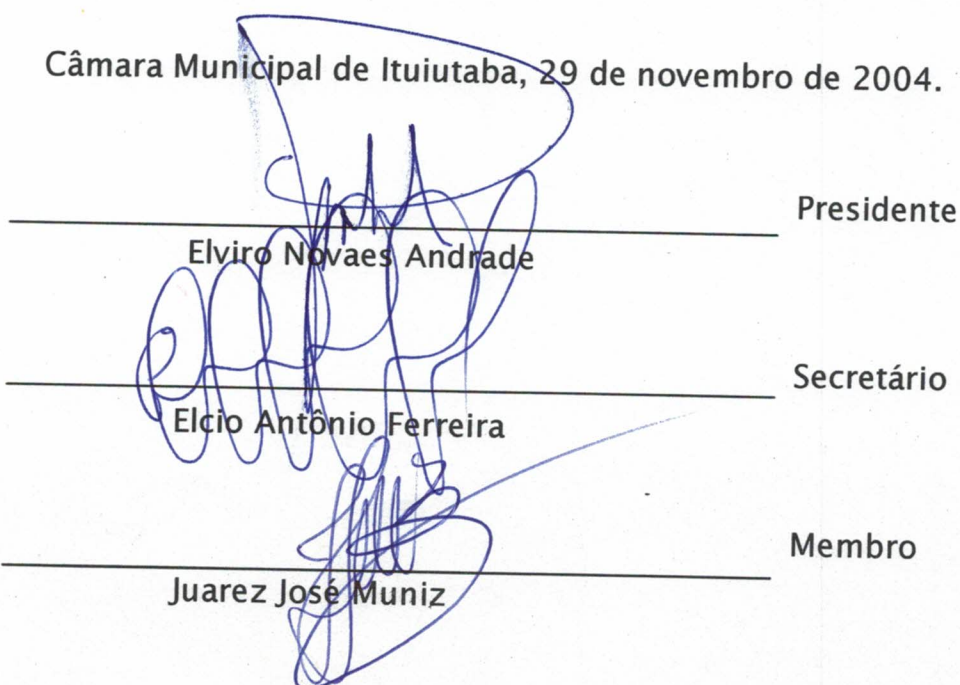 Câmara Municipal de Ituiutaba, 29 de novembro de 2004.
Presidente
Elviro Novaes Andrade
Secretário
Elcio Antônio Ferreira
Membro
Juarez José Muniz